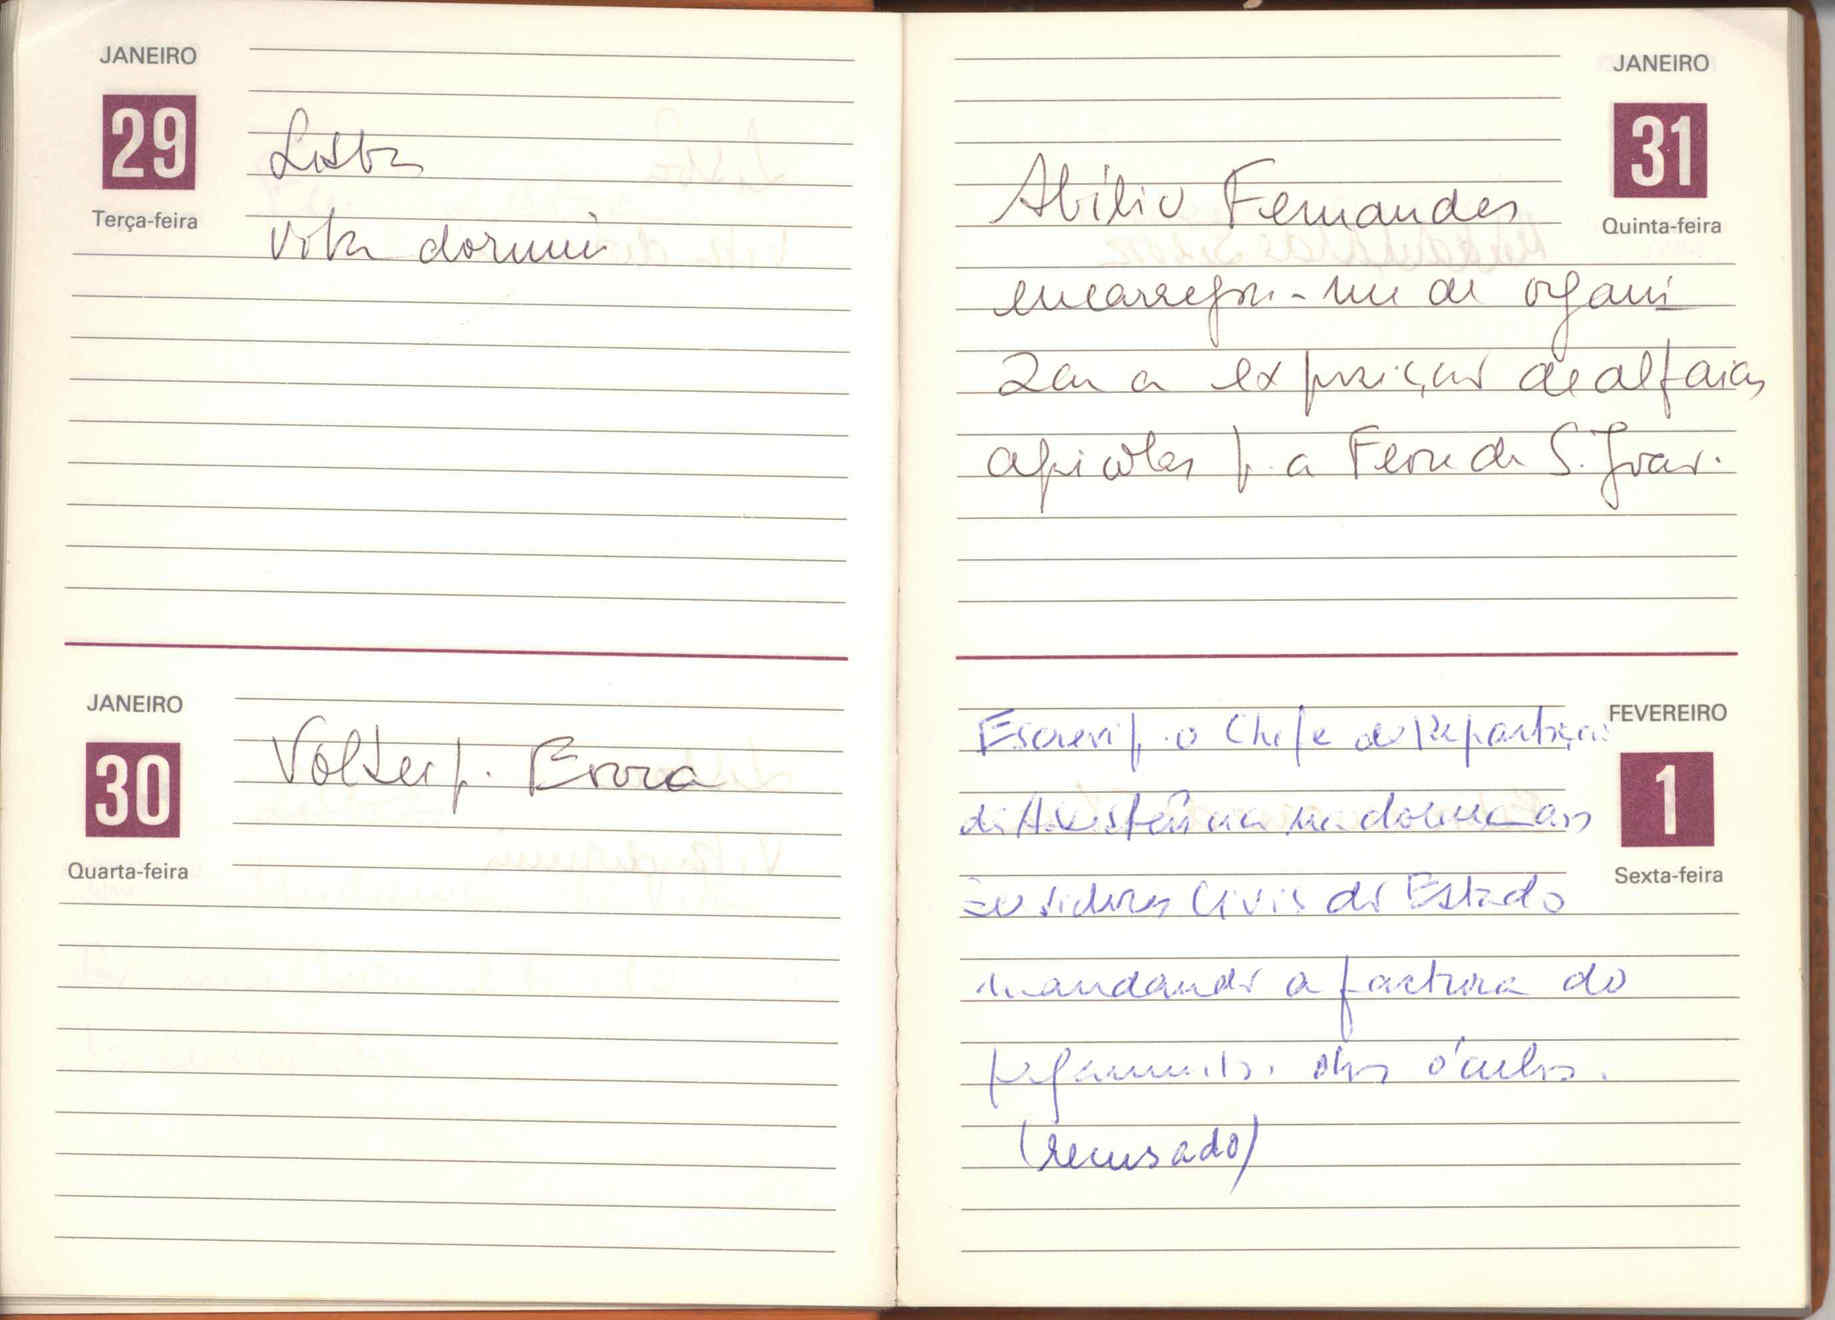 JANEIRO
29
Terça-feira
Lisboa
dormir
JANEIRO
30
Quarta-feira
Voltei p. Évora
JANEIRO
31
Quinta-feira
Abílio Fernandes
encarregou-me de organi
zar a exposição de alfaias
agrícolas p. a Feira de S. João.
FEVEREIRO
1
Sexta-feira
Escrevi p. o Chefe da Repartição
da Assistência na doença aos
Servidores Civis do Estado
mandando a factura do
pagamento dos óculos.
(recusado)